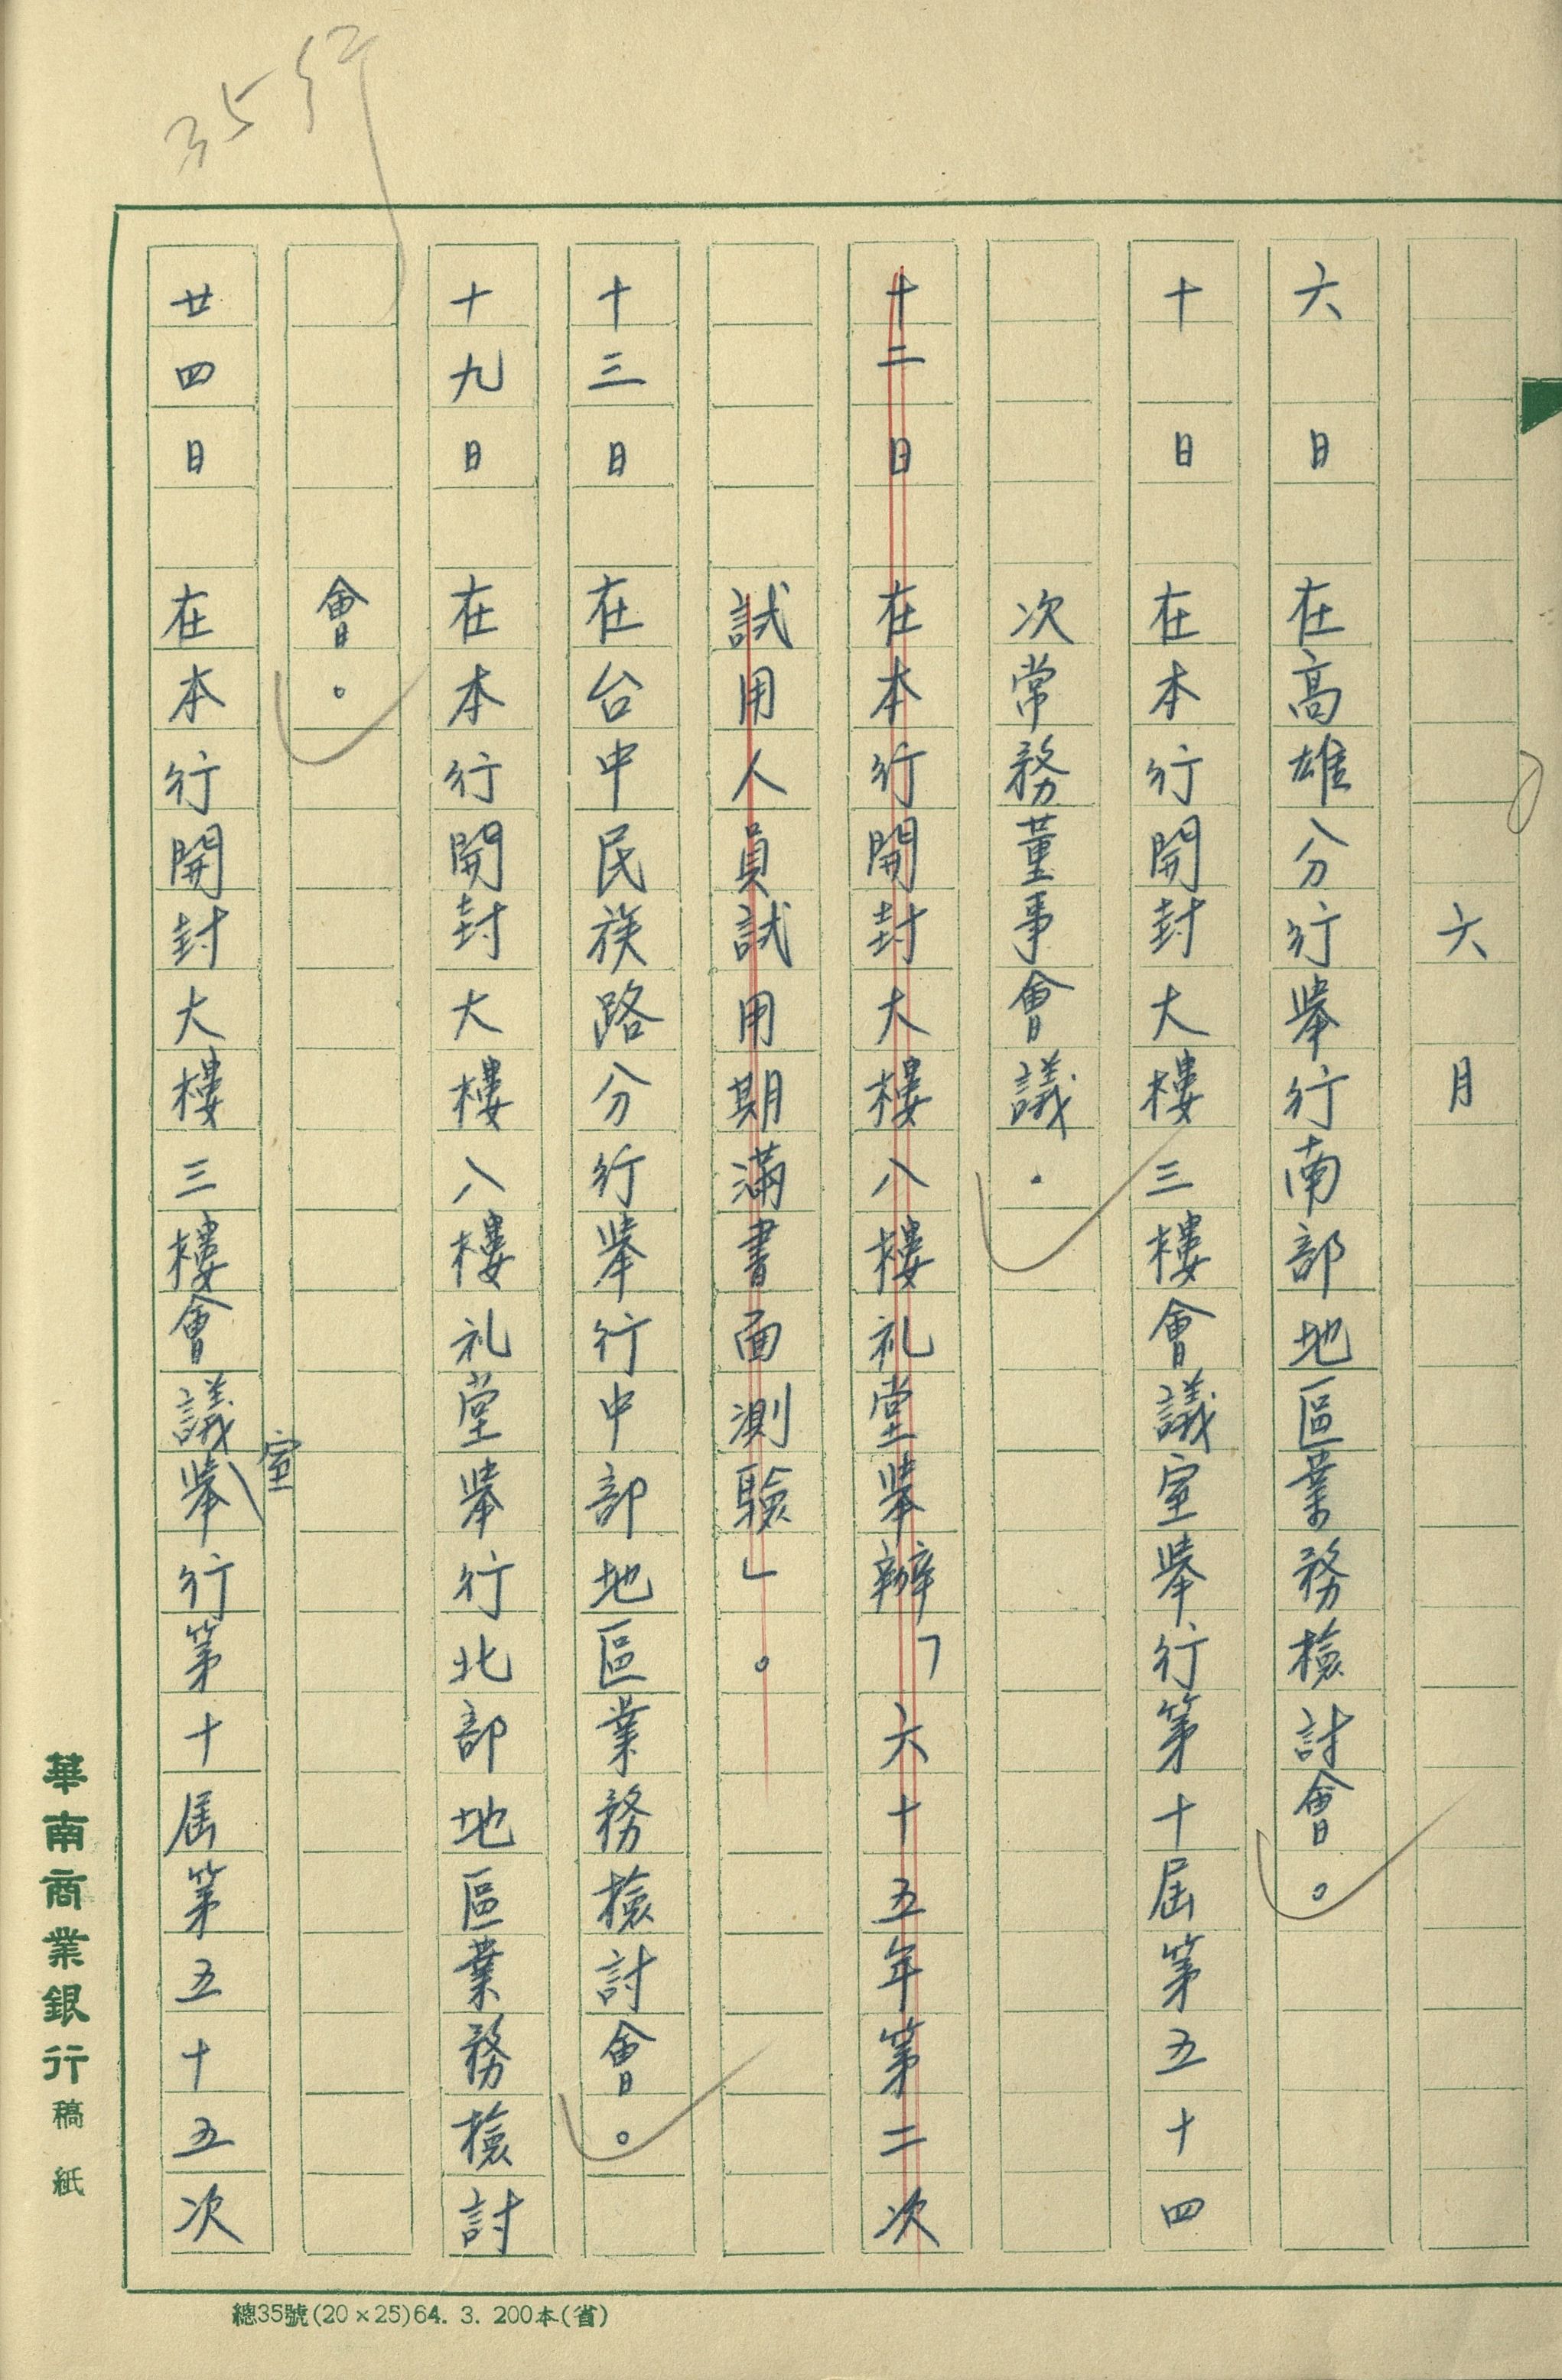 35行
六月
六日　在高雄分行舉行南部地區業務檢討會。
十日　在本行開封大樓三樓會議室舉行第十屆第五十四
次常務董事會議.
十二日　在本行開封大樓八樓礼堂舉辦「六十五年第二次
試用人員試用期滿書面測驗」。
十三日　在台中民族路分行舉行中部地區業務檢討會。
十九日　在本行開封大樓八樓礼堂舉行北部地區業務檢討
會。
廿四日　在本行開封大樓三樓會議室舉行第十屆第五十五次
華南商業銀行稿紙
總35號(20×25)64. 3. 200本(省)